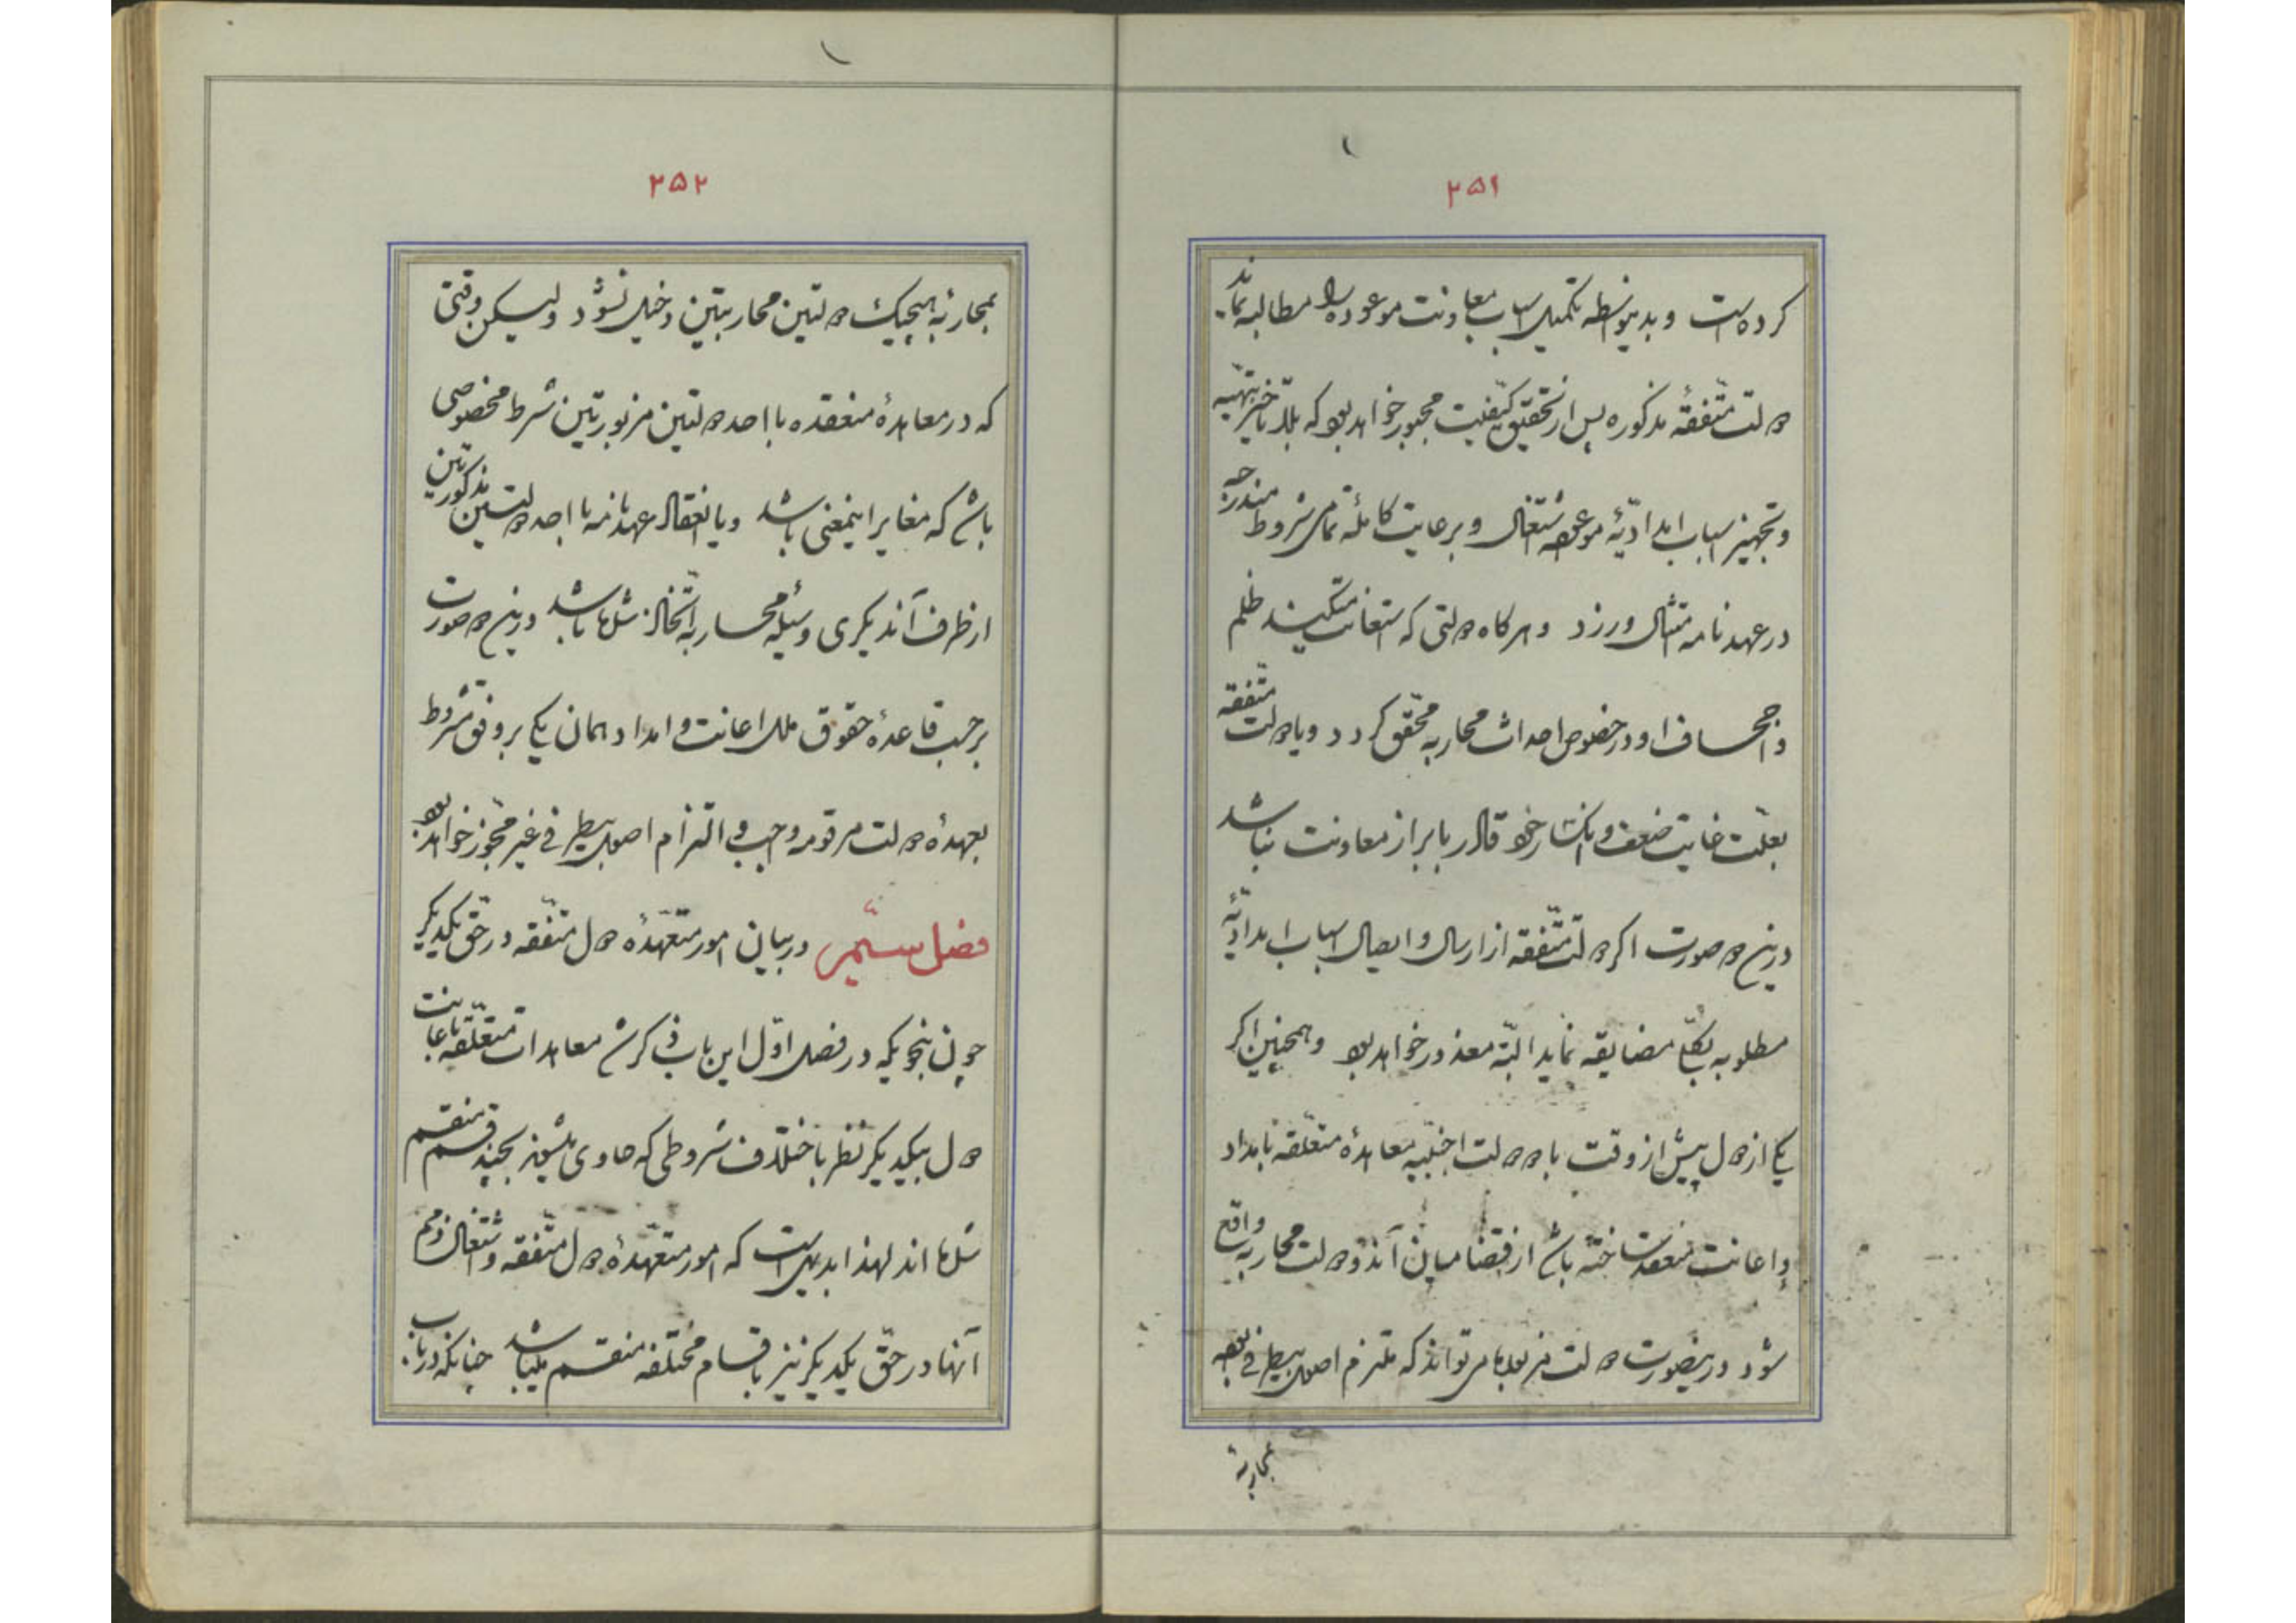 ۲۵۱
کرده است و بدینواسطه تکمیل اسباب معاونت موعوده را مطالبه نماید
دولت متّفقهٔ مذکوره پس از تحقیق کیفیت مجبور خواهد بود که بلا تأخیر بتهیّه
و تجهیز اسباب امدادیّهٔ موعوده اشتغال و برعایت کاملهٔ تمامی شروط مندرجه
در عهدنامه امتثال ورزد و هرگاه دولتی که استعانت میکند ظلم
و اجحاف او در خصوص احداث محاربه محقّق گردد و یا دولت متّفقه
بعلّت غایت ضعف و انکسار خود قادر بابراز معاونت نباشد
درین دو صورت اگر دولت متّفقه از ارسال و ایصال اسباب امدادیّهٔ
مطلوبه بکلّی مضایقه نماید البتّه معذور خواهد بود و همچنین اگر
یکی از دول پیش از وقت با دو دولت اجنبیّه معاهدهٔ متعلّقه بامداد
و اعانت منعقد ساخته باشد از قضا میان آندو دولت محاربه واقع
شود در ینصورت دولت مزبوره می تواند که ملتزم اصول بیطرفی بوده
بمحاربهٔ
۲۵۲
بمحاربهٔ هیچیک دولتین محاربتین دخیل نشود ولیکن وقتی
که در معاهدهٔ منعقده با احد دولتین مزبورتین شرط مخصوصی
باشد که مغایر اینمعنی باشد و یا انعقاد عهدنامه با احد دولتین مذکورتین
از طرف آندیگری وسیلهٔ محاربه اتّخاذ شده باشد درین دو صورت
برحسب قاعدهٔ حقوق ملل اعانت و امداد همان یکی بر وفق شروط
بعهدهٔ دولت مرقومه واجب و التزام اصول بیطرفی غیر مجوّز خواهد بود
فصل ستّم در بیان امور متعهّدهٔ دول متّفقه در حقّ یکدیگر
چون بنحویکه در فصل اوّل این باب ذکر شد معاهدات متعلّقه باعانت
دول بیکدیگر نظر باختلاف شروطی که حاوی میشوند بچند قسم منقسم
شده اند لهذا بدیهی است که امور متعهّدهٔ دول متّفقه و اشتغال ذمم
آنها در حقّ یکدیگر نیز باقسام مختلفه منقسم میباشد چنانکه در باب